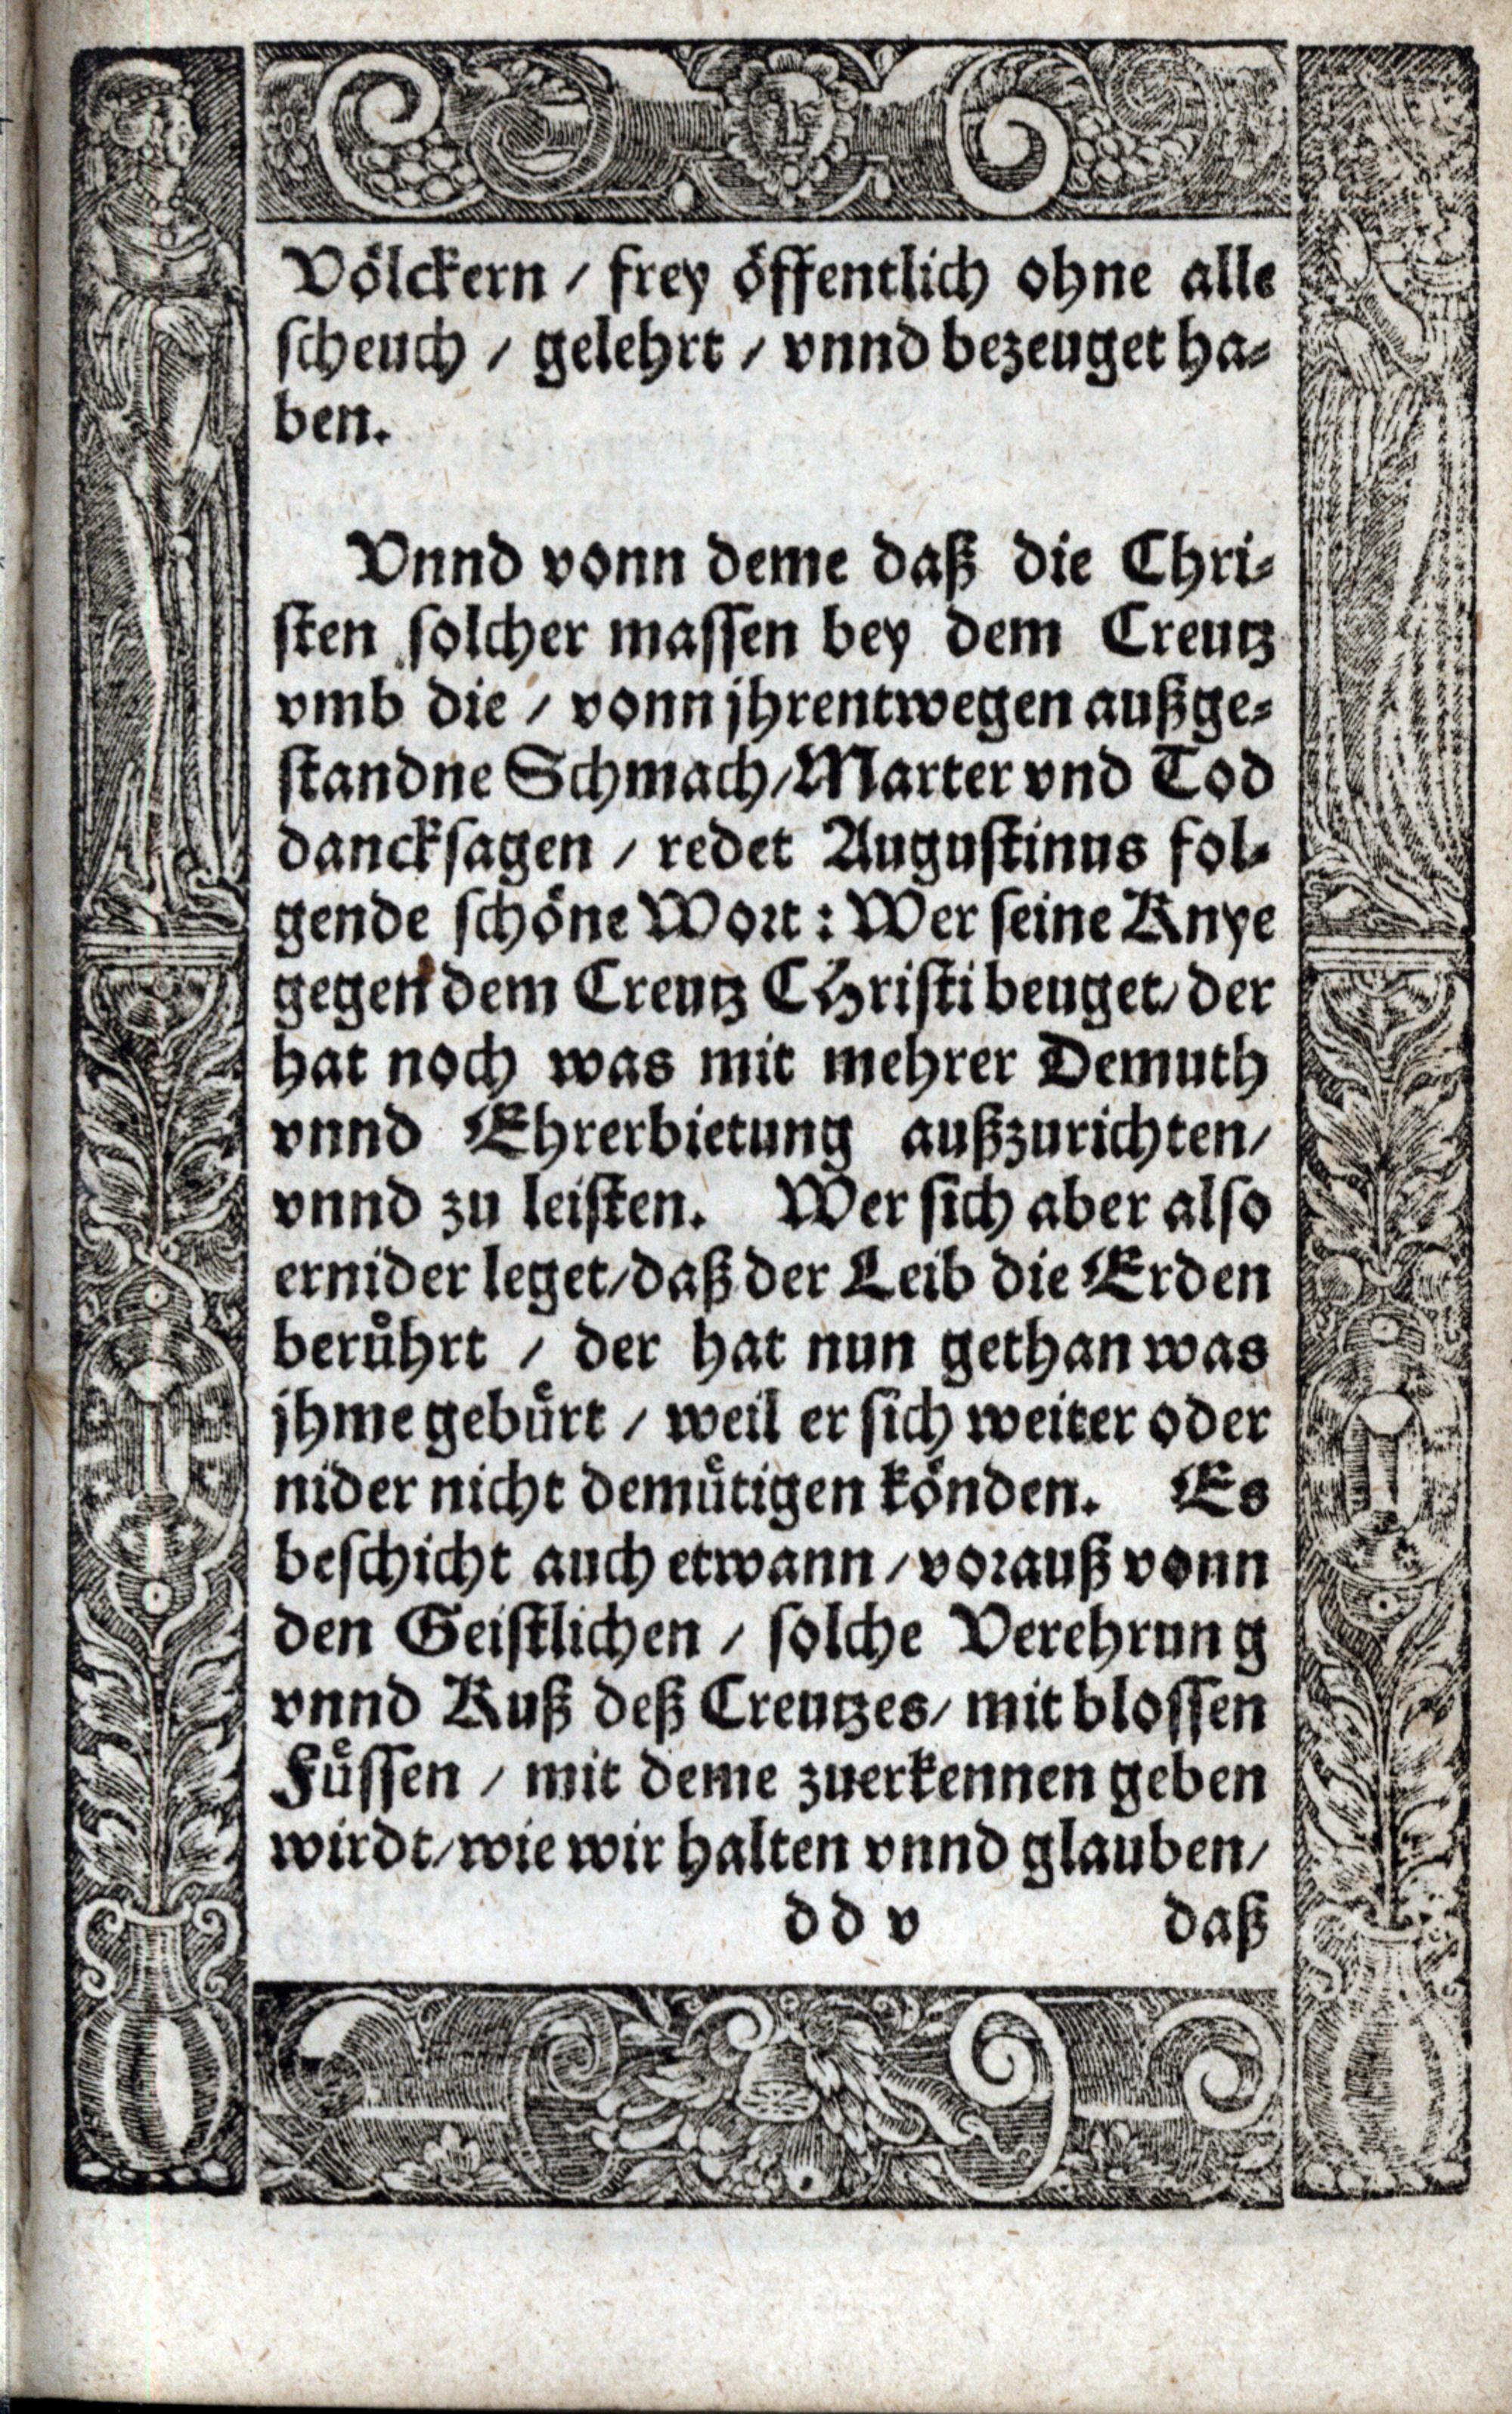 Völckern / frey öffentlich ohne alle
scheuch / gelehrt / vnnd bezeuget ha-
ben.
Vnnd vonn deme daß die Chri-
sten solcher massen bey dem Creutz
vmb die / vonn jhrentwegen außge-
standne Schmach / Marter vnd Tod
dancksagen / redet Augustinus fol-
gende schöne Wort : Wer seine Knye
gegen dem Creutz CHristi beuget / der
hat noch was mit mehrer Demuth
vnnd Ehrerbietung außzurichten /
vnnd zu leisten. Wer sich aber also
ernider leget / daß der Leib die Erden
berührt / der hat nun gethan was
jhme gebürt / weil er sich weiter oder
nider nicht demütigen könden. Es
beschicht auch etwann / vorauß vonn
den Geistlichen / solche Verehrung
vnnd Kuß deß Creutzes / mit blossen
Füssen / mit deme zuerkennen geben
wirdt / wie wir halten vnnd glauben /
dd v daß